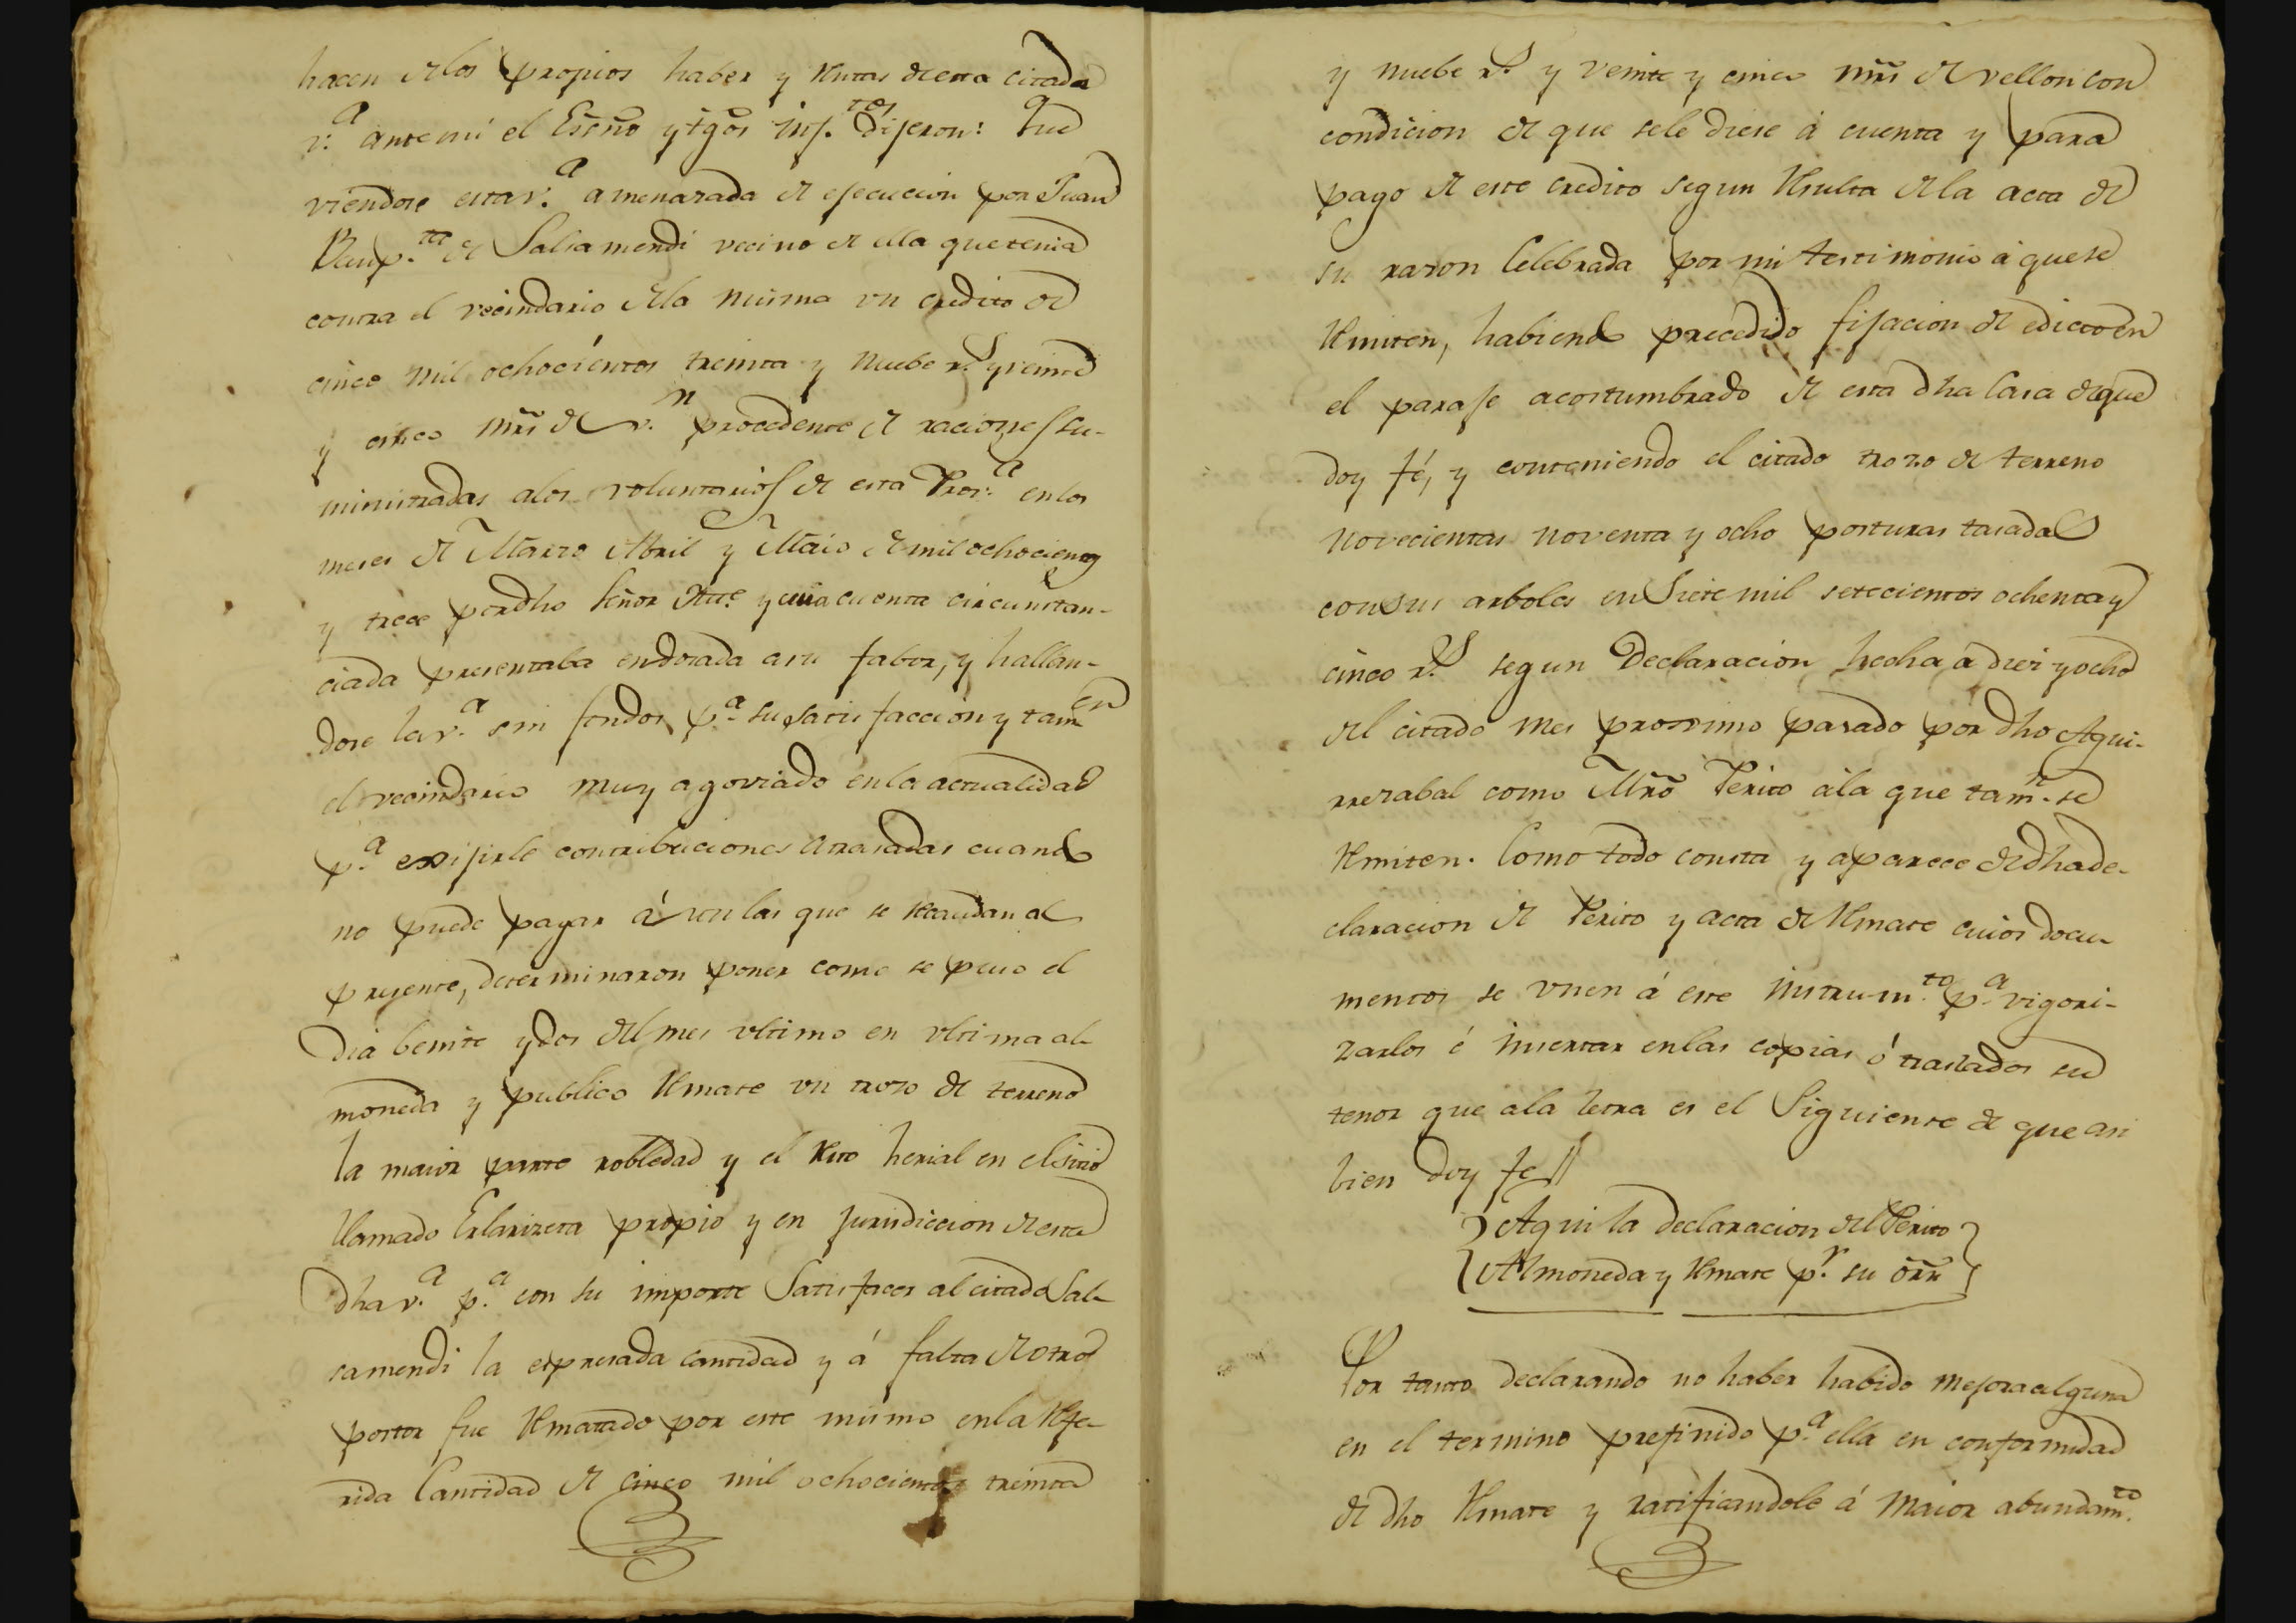 hacen de los propios haber y Rentas de esta citada
v.ª ante mi el Esc̃no y tg̃os inf.tos dijeron: Que
viendose esta v.ª amenazada de ejecucion por Juan
Baup.ta de Salsamendi vecino de ella que tenia
contra el vecindario de la misma un credito de
cinco mil ochocientos treinta y nuebe r.s y veinte
y cinco mr̃s de v.n procedente de raciones su-
ministradas a los voluntarios de esta Prov.ª en los
meses de Marzo Abril y Maio de mil ochocientos
y trece por dho Señor Alce. y cuia cuenta circunstan-
ciada presentaba endosada a su fabor, y hallan-
dose la v.ª sin fondos p.ª su satisfaccion y tam.en
el vecindario muy agoviado en la actualidad
p.ª exijirle contribuciones atrasadas cuando
no puede pagar aun las que se recaudan al
presente, determinaron poner como se puso el
dia beinte y dos del mes ultimo en ultima al-
moneda y publico Remate un trozo de terreno
la maior parte robledad y el Resto herial en el sitio
llamado Erlarizeta propio y en jurisdiccion de esta
dha v.ª p.ª con su importe Satisfacer al citado Sal-
samendi la espresada cantidad y á falta de otro
postor fue Rematado por este mismo en la Refe-
rida Cantidad de cinco mil ochocientos treinta
y nuebe r.s y veinte y cinco mr̃s de vellon con
condicion de que se le diese á cuenta y para
pago de este credito segun Resulta de la acta de
su razon Celebrada por mi testimonio á que se
Remiten, habiendo precedido fijacion de edicto en
el paraje acostumbrado de esta dha Casa de que
doy fé, y conteniendo el citado trozo de terreno
novecientas noventa y ocho posturas tasadas
con sus arboles en Siete mil setecientos ochenta y
cinco r.s segun Declaracion hecha á diez y ocho
del citado mes prossimo pasado por dho Agui-
rrezabal como Mr̃o Perito á la que tam.n se
Remiten. Como todo consta y aparece de dha de-
claracion de Perito y acta de Remate cuios docu-
mentos se unen á este instrum.to p.ª vigori-
zarlos é insertar en las copias ó traslados su
tenor que a la letra es el Siguiente de que asi
bien doy fe //
Aqui la declaracion del Perito
Almoneda y Remate p.r su or̃n
Por tanto declarando no haber habido mejora alguna
en el termino prefinido p.ª ella en conformidad
de dho Remate y ratificandole á maior abundam.to